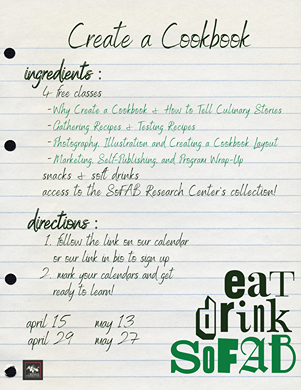 Create a Cookbook
ingredients :
4 free classes
- Why Create a Cookbook & How to Tell Culinary Stories
- Gathering Recipes & Testing Recipes
- Photography, Illustration and Creating a Cookbook Layout
- Marketing, Self-Publishing, and Program Wrap-Up
snacks & soft drinks
access to the SoFAB Research Center's collection!
directions :
1. follow the link on our calendar
or our link in bio to sign up
2. mark your calendars and get
ready to learn!
april 15 may 13
april 29 may 27
eat
drink
SoFAB